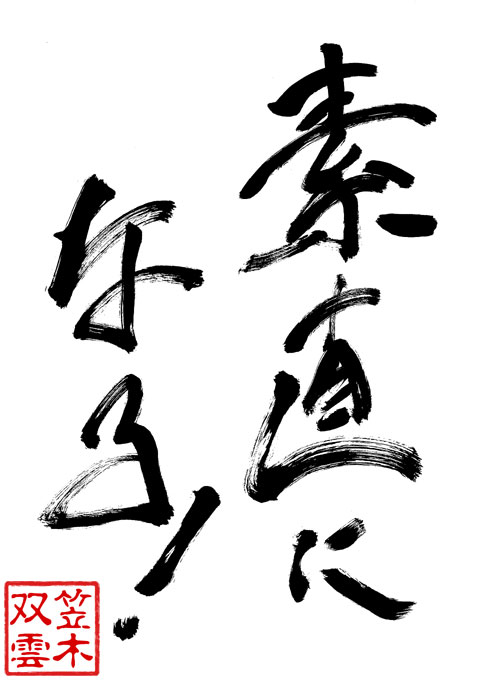 素直に
なる!
笠木
双雲